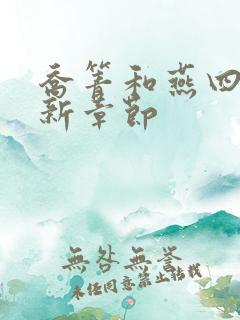 喬箐和燕四
新章節
無咎無譽
未经同意禁止转载